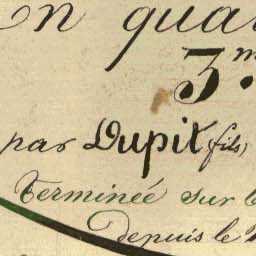 En qua
3.me
par Dupit (fils)
Terminée sur l
depuis le